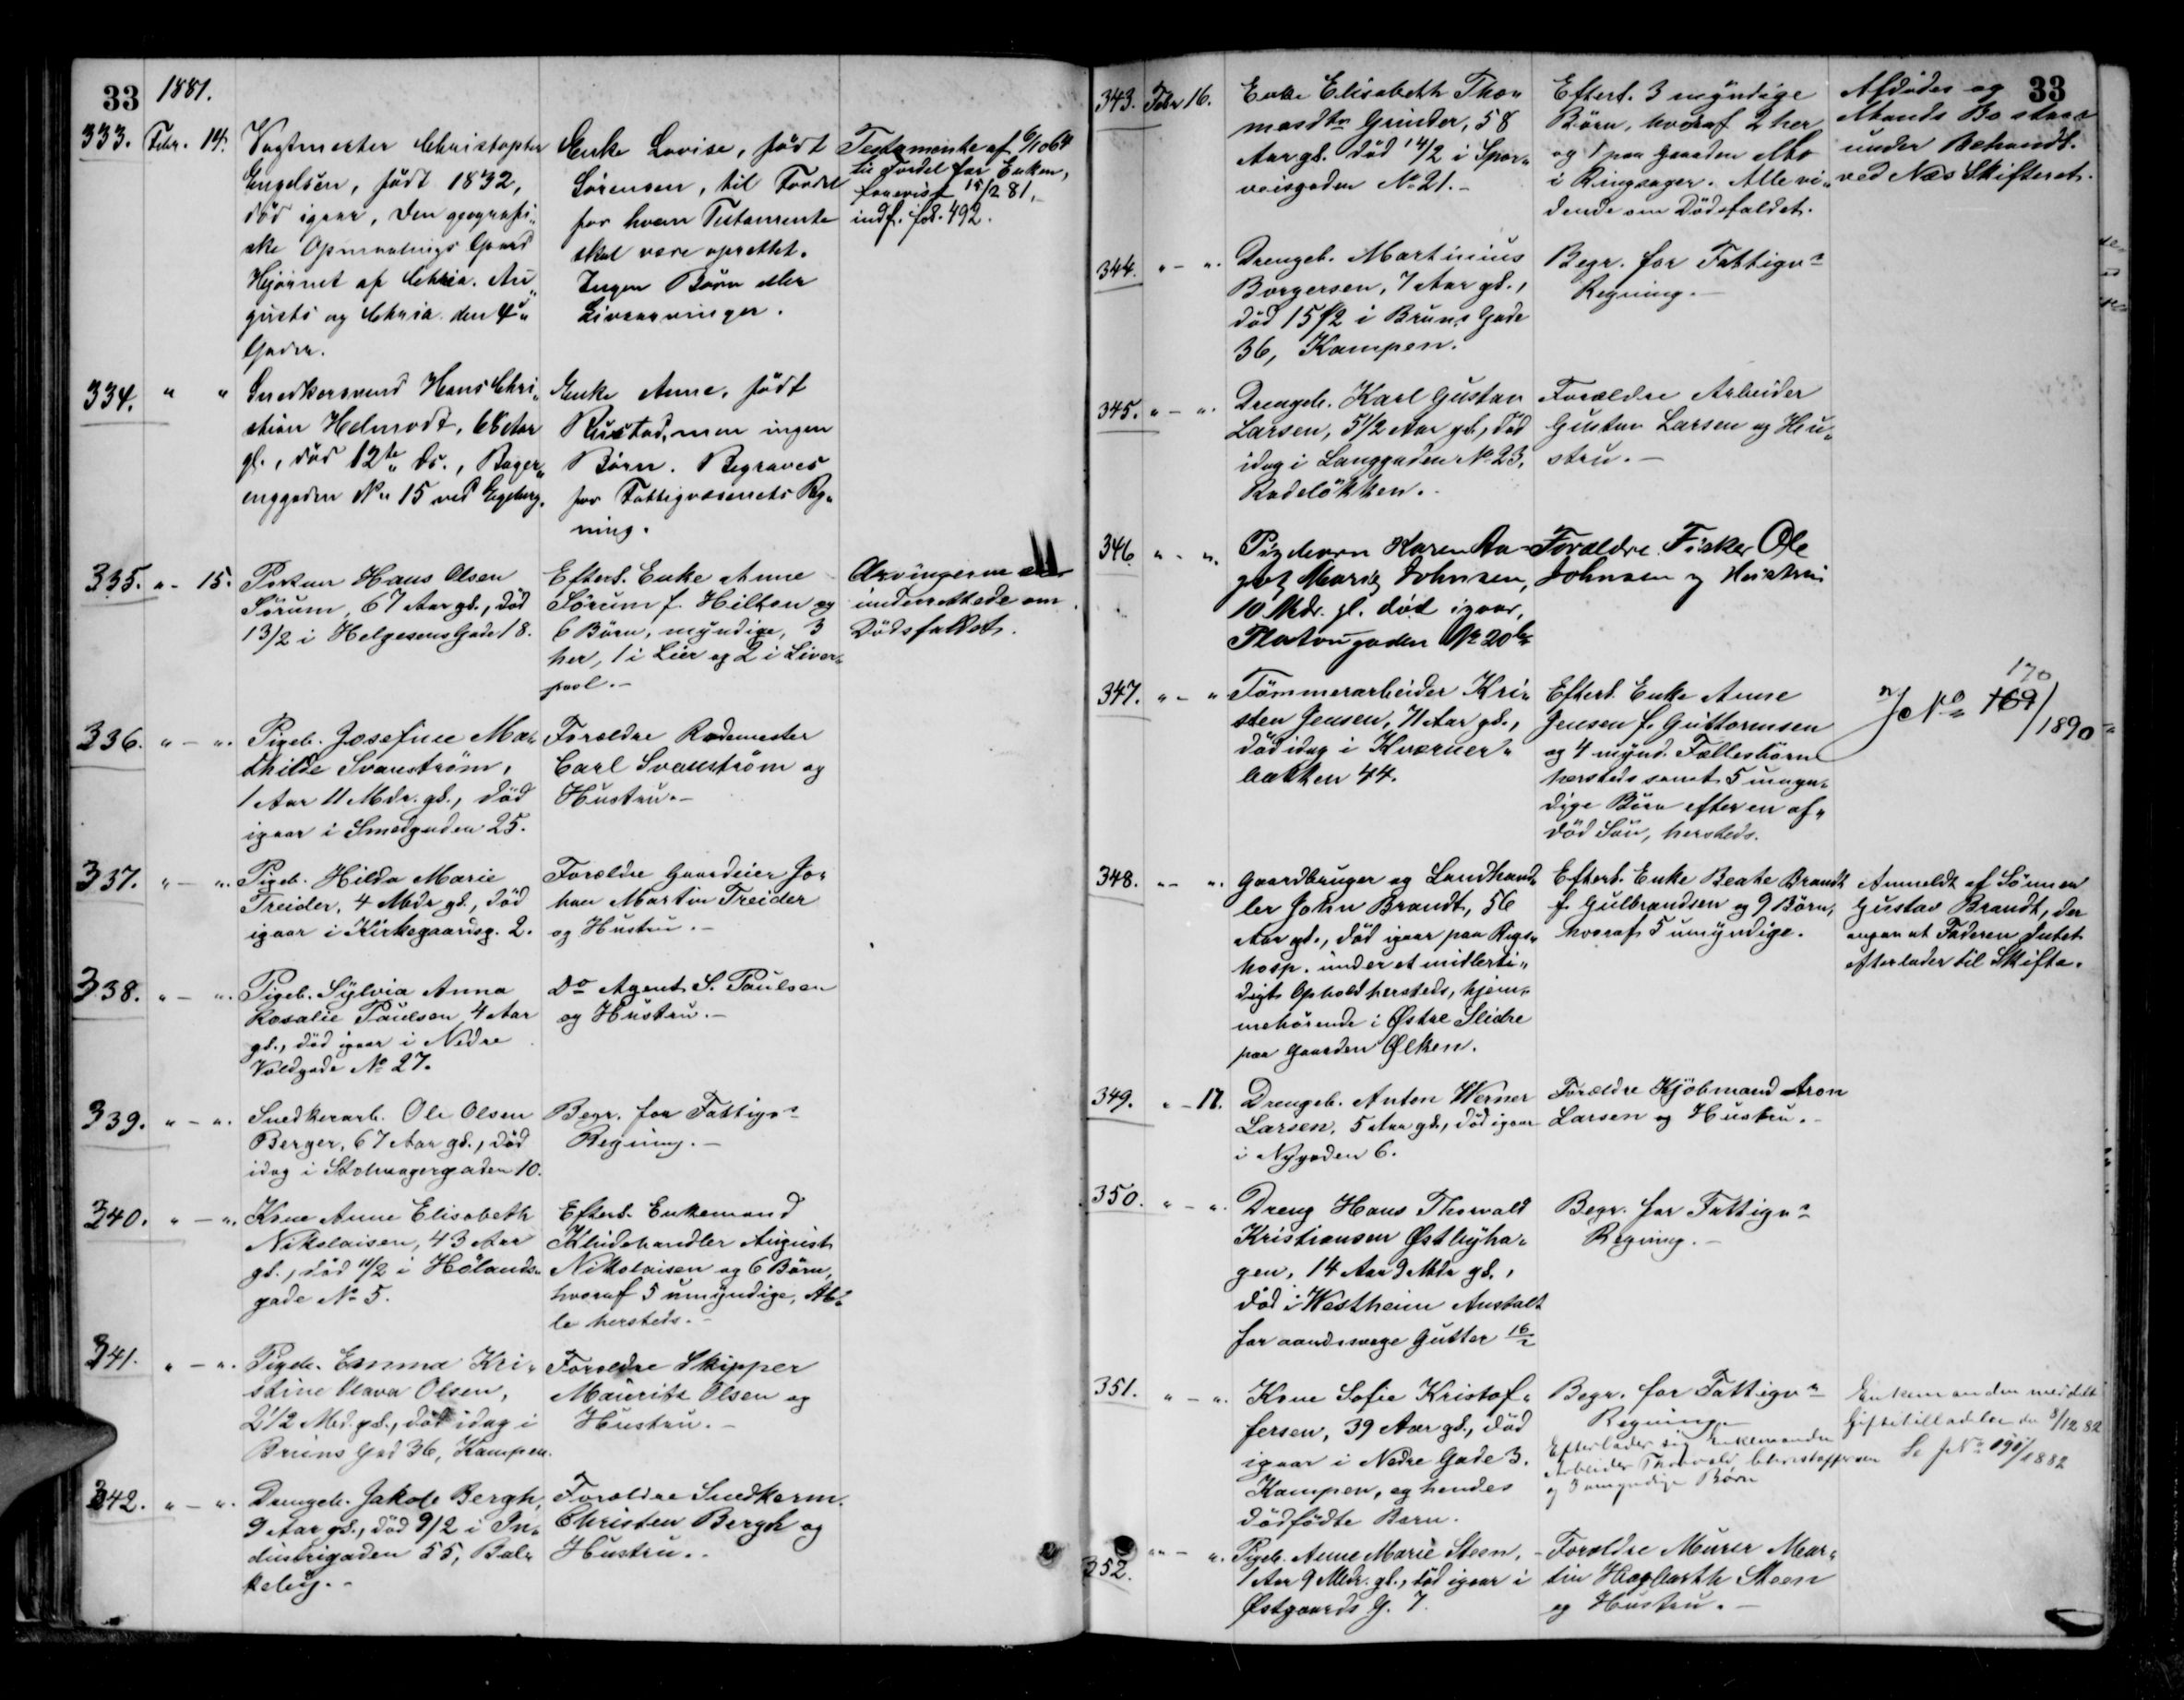 33 1881.
333. Febr. 14. Vagtmester Christopher
Engelsen, født 1832,
død igaar, den geografi„
ske Opmaalings Gaard
Hjørnet af Chria. Au„
gusts og Chria. den 4des
Gader.
Enke Lovise, født
Sørensen, til Fordel
for hvem Testamente
skal være oprettet.
Ingen Børn eller
Livsarvinger.
Testamente af 6/10 64
til Fordel for Enken,
forevist 15/2 81,
indf. fol. 492.
334. " " Snedkersvend Hans Chri„
stian Helmodt, 68 Aar
gl., død 12te ds., Bager„
enggaden No 15 ved Egeberg.
Enke Anne, født
Rustad, men ingen
Børn. Begraves
for Fattigvæsenets Reg„
ning.
335. " - 15. Hans Olsen
Sørum, 67 Aar gl., død
13/2 i Helgesens Gade 18.
Efterl. Enke Anne
Sørum f. Hilton og
6 Børn, myndige, 3
her, 1 i Lier og 2 i Liver„
pool. -
Arvingerne
underrettede om
Dødsfaldet.
336. " - ". Pigeb. Josefine Ma„
thilde Svanstrøm,
1 Aar 11 Mdr. gl., død
igaar i Smedgaden 25.
Forældre Rodemester
Carl Svanstrøm og
Hustru. -
337. " - ". Pigeb. Hilda Marie
Treider, 4 Mdr gl., død
igaar i Kirkegaardsg. 2.
Forældre Gaardeier Jo„
han Martin Treider
og Hustru. -
338. " - ". Pigeb. Sylvia Anna
Rosalie Paulsen, 4 Aar
gl., død igaar i Nedre
Voldgade No 27.
Do Agent S. Paulsen
og Hustru. -
339. " - ". Snedkerarb. Ole Olsen
Berger, 67 Aar gl., død
idag i Stolmagergaden 10.
Begr. for Fattigvs
Regning. -
340. " - ". Kone Anne Elisabeth
Nikolaisen, 43 Aar
gl., død 11/2 i Hølands„
gade No 5.
Efterl. Enkemand
Kludehandler August
Nikolaisen og 6 Børn,
hvoraf 5 umyndige, Al„
le hersteds. -
341. " - ". Pigeb. Emma Kri„
stine Olava Olsen,
2 1/2 Md. gl., død idag i
Bruns Gad 36, Kampen.
Forældre Skipper
Mauritz Olsen og
Hustru. -
342. " - ". Drengeb. Jakob Bergh,
9 Aar gl., død 9/2 i In„
dustrigaden 55, Bal„
keby. -
Forældre Snedkerm.
Christen Bergh og
Hustru. -
33
343. Febr 16. Enke Elisabeth Tho„
masdtr Grinder, 58
Aar gl. død 14/2 i Spor„
veisgaden No 21. -
Efterl. 3 myndige
Børn, hvoraf 2 her
og 1 paa Gaarden Mo
i Ringsager. Alle vi„
dende om Dødsfaldet.
Afdødes og
Mands Bo staar
under Behandl.
ved Næs Skifteret.
344. " - ". Drengeb. Martinius
Borgersen, 7 Aar gl.,
død 15/2 i Bruns Gade
36, Kampen.
Begr. for Fattigvs
Regning. -
345. " - ". Drengeb. Karl Gustav
Larsen, 5 1/2 Aar gl., død
idag i Langgaden No 23,
Rodeløkken.
Forældre Arbeider
Gustav Larsen og Hu„
stru. -
346. " - ". Pigebarn Karen Au-
gusta Johnsen,
10 Mdr. gl. død igaar,
Platougaden No 20b
Forældre Fisker Ole
Johnsen og Hustru
347. " - " Tømmerarbeider Kri„
sten Jensen, 71 Aar gl.,
død idag i Kværner„
bakken 44.
Efterl. Enke Anne
Jensen f. Guttormsen
og 4 mynd. Fællesbørn
hersteds samt 5 umyn„
dige Børn efter en af„
død Søn, hersteds.
170
J No 169/1890
348. " - ". Gaardbruger og Landhand„
ler John Brandt, 56
Aar gl., død igaar paa Rigs„
hosp. under et midlerti„
digt Ophold hersteds, hjem„
mehørende i Østre Slidre
paa Gaarden Ølken.
Efterl. Enke Beate Brandt
f. Gulbrandsen og 9 Børn,
hvoraf 5 umyndige.
Anmeldt af Sønnen
Gustav Brandt, der
angav at Faderen Intet
efterlader til Skifte.
349. " - 17. Drengeb. Anton Werner
Larsen, 5 Aar gl., død igaar
i Nygaden 6.
Forældre Kjøbmand Aron
Larsen og Hustru. -
350. " - ". Dreng Hans Thorvald
Kristiansen Østbyha„
gen, 14 Aar 9 Mdr gl.,
død i Westheim Anstalt
for aandssvage Gutter 16/2
Begr. for Fattigvs
Regning. -
351. " - ". Kone Sofie Kristof„
fersen, 39 Aar gl., død
igaar i Nedre Gade 3.
Kampen, og hendes
dødfødte Barn.
Begr. for Fattigvs
Regning
Efterlader sig Enkemanden
Arbeider Thorvald Christoffersen
og 3 umyndige Børn
Enkemanden meddelt
Giftetilladelse den 8/12 82
Se J No 191/1882
352. " - ". Pigeb. Anne Marie Steen,
1 Aar 9 Mdr. gl., død igaar i
Østgaards G. 7.
Forældre Murer Mar„
tin Hagbarth Steen
og Hustru. -